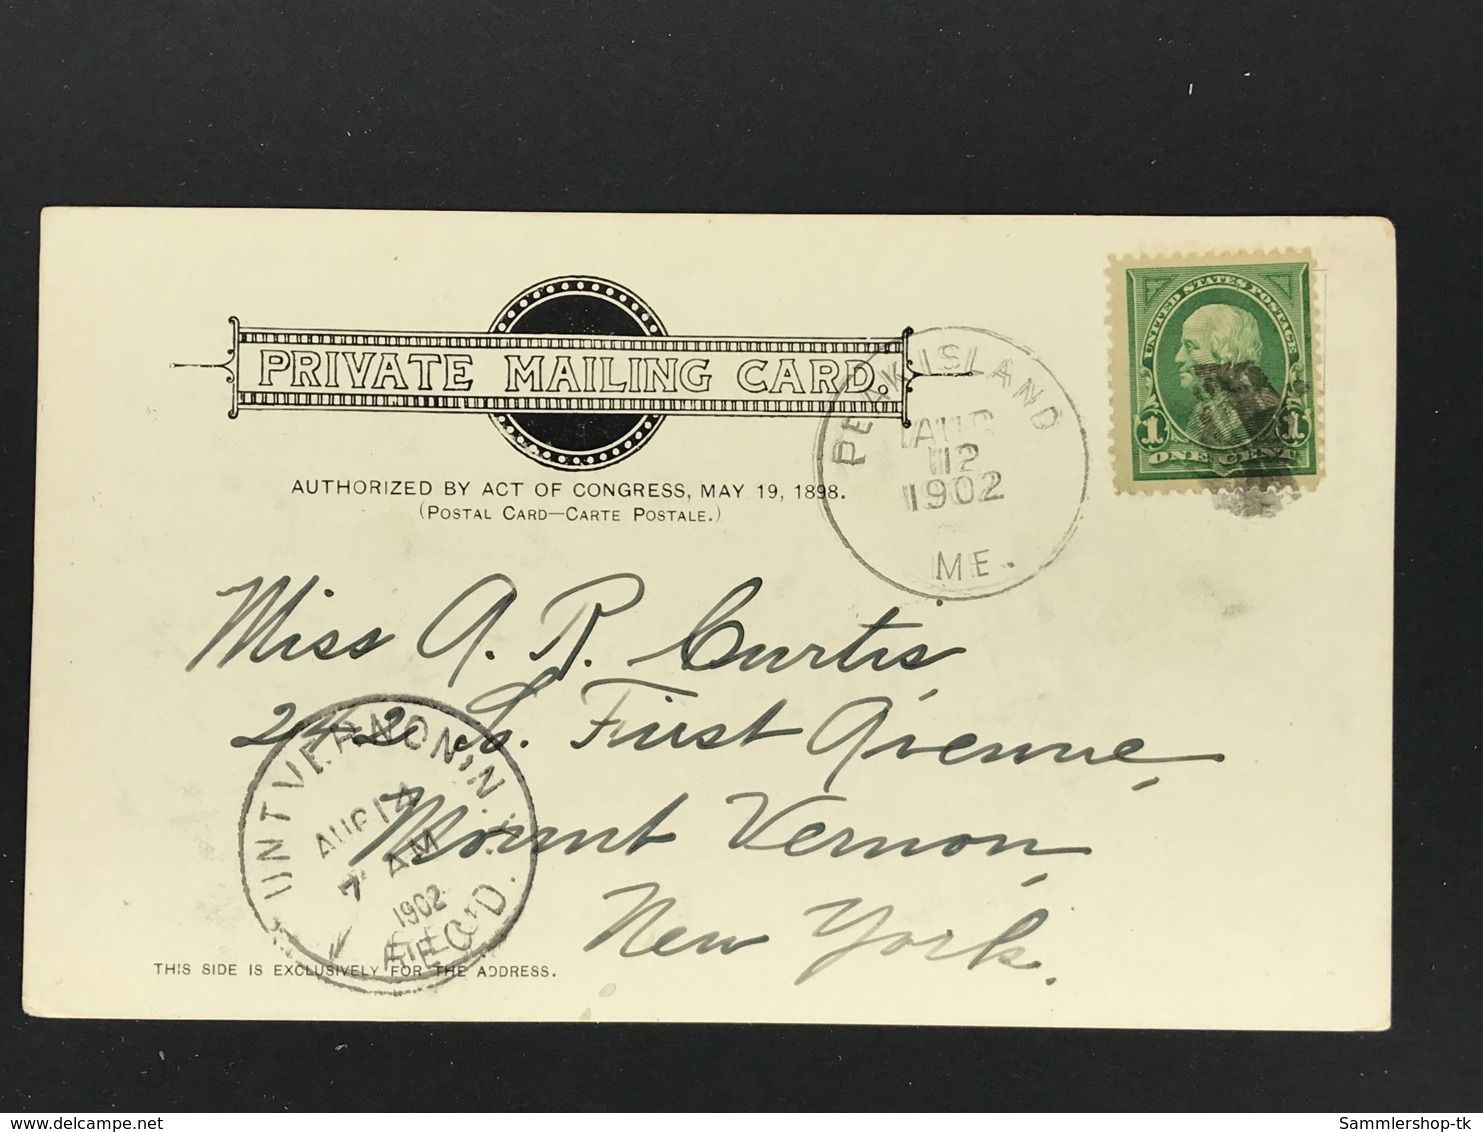 PRIVATE MAILING CARD.
AUTHORIZED BY ACT OF CONGRESS, MAY 19, 1898.
(POSTAL CARD—CARTE POSTALE.)
PEAK ISLAND
AUG
12
1902
ME.
UNITED STATES POSTAGE
1 1
ONE CENT
Miss A. R. Curtis
242 S. First Avenue,
Mount Vernon,
New York.
UNT VERNON, N.
AUG 14
7 AM
1902
REC'D.
THIS SIDE IS EXCLUSIVELY FOR THE ADDRESS.
delcampe.net
Sammlershop-tk